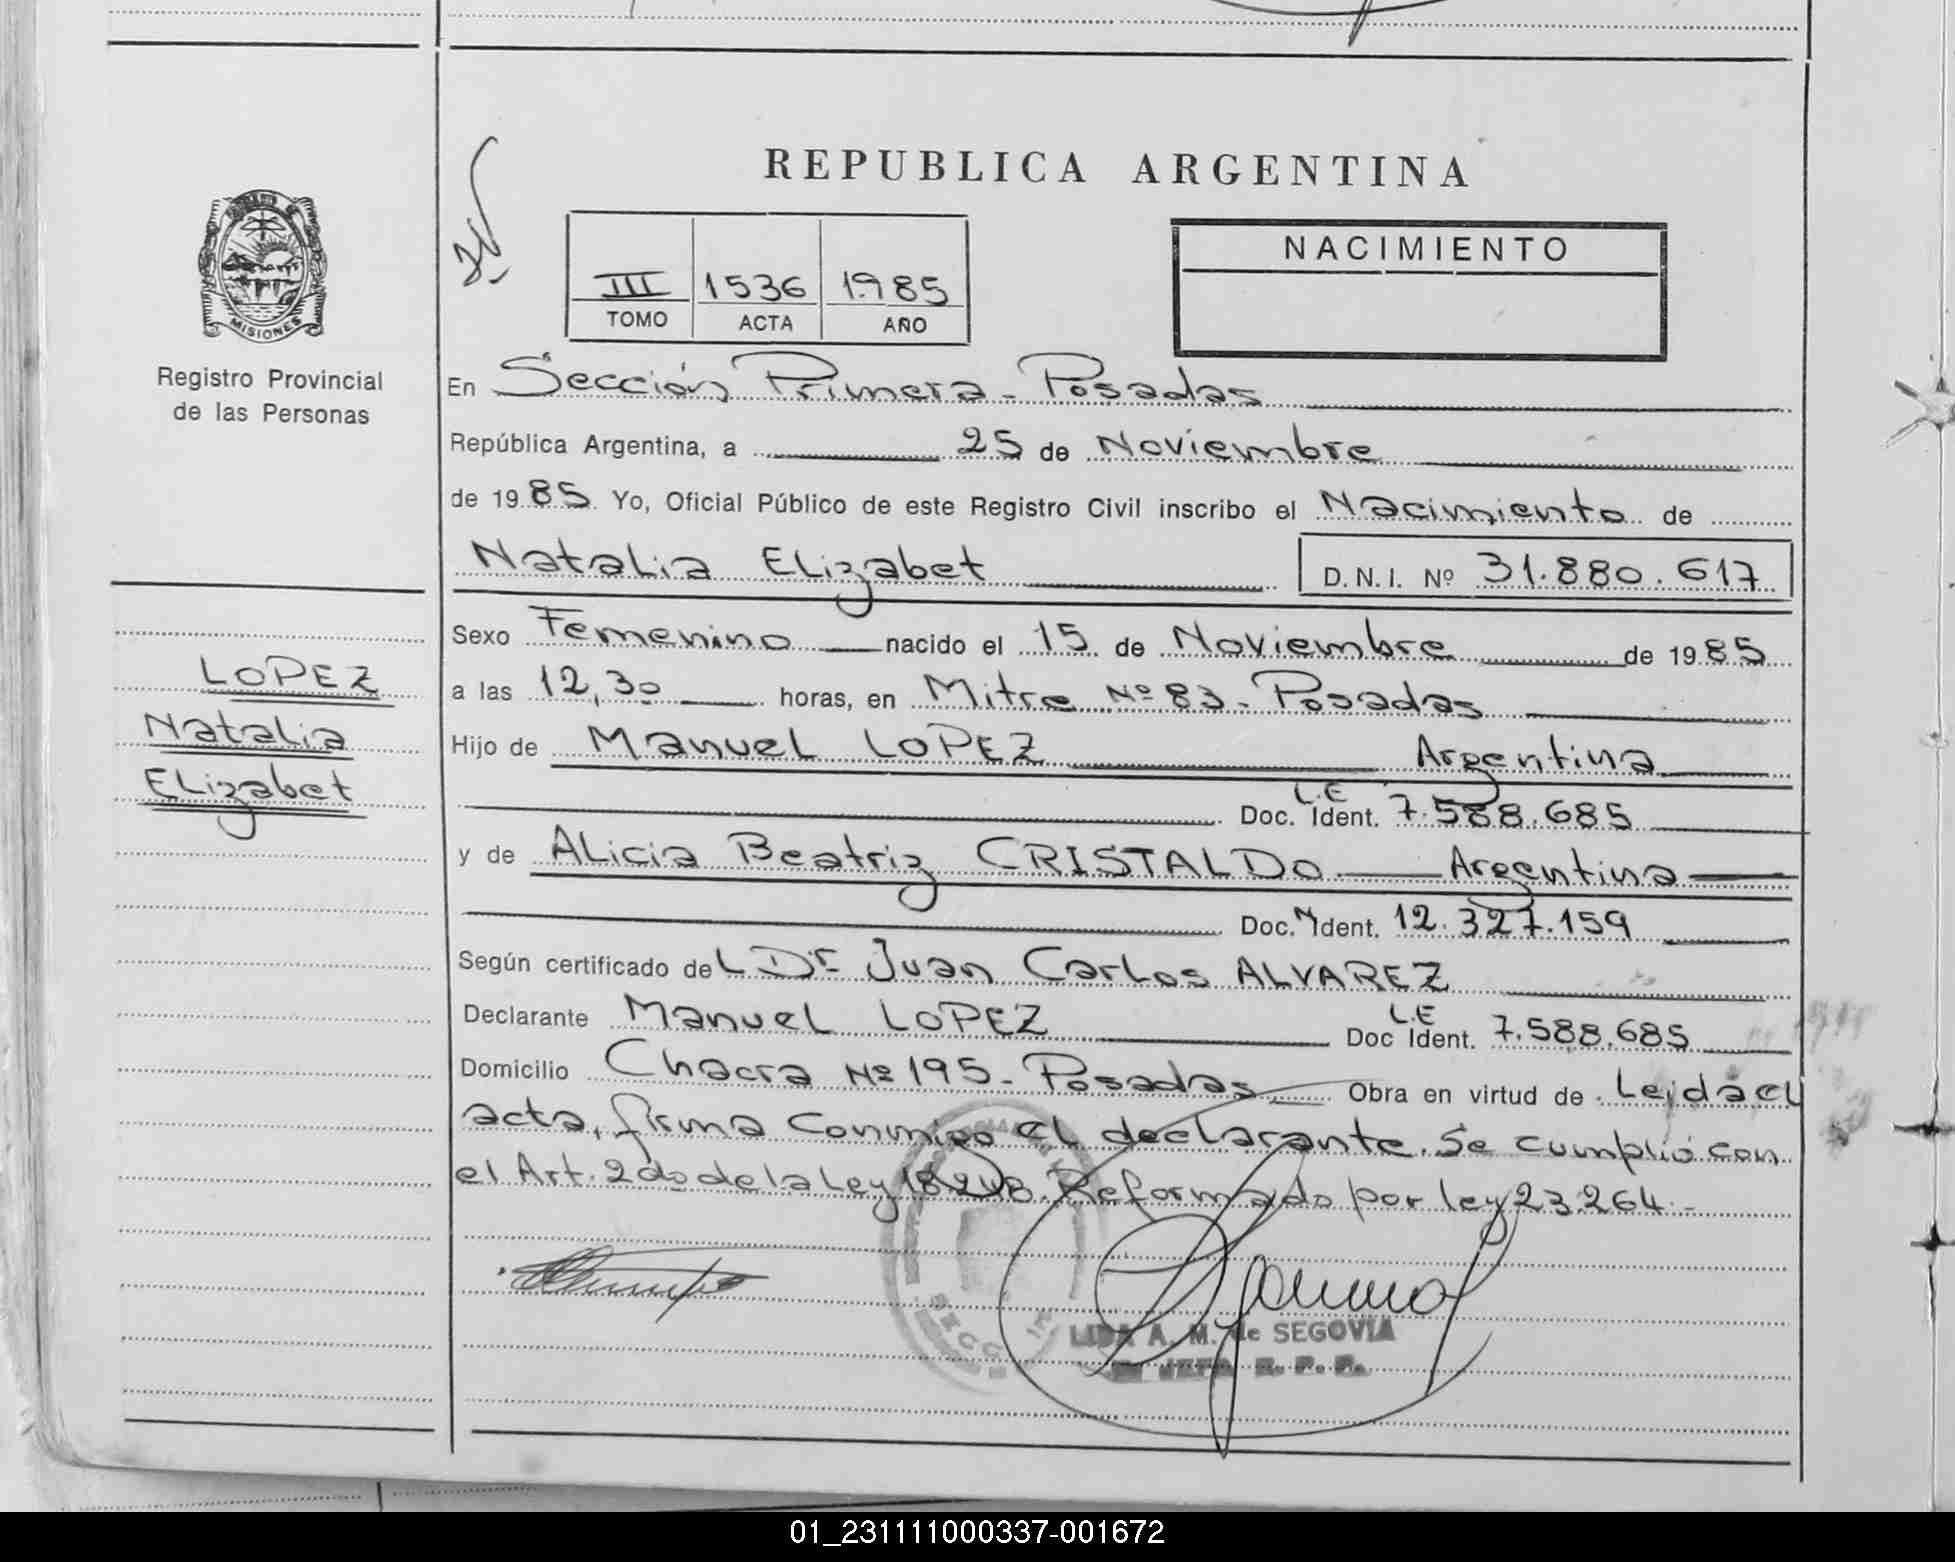 REPUBLICA ARGENTINA
NACIMIENTO
III 1536 1985
TOMO ACTA AÑO
MISIONES
Registro Provincial
de las Personas
LOPEZ
Natalia
Elizabet
En Sección Primera - Posadas
República Argentina, a 25 de Noviembre
de 1985. Yo, Oficial Público de este Registro Civil inscribo el Nacimiento de
Natalia Elizabet D.N.I. Nº 31.880.617
Sexo Femenino nacido el 15 de Noviembre de 1985
a las 12,30 horas, en Mitre Nº 83 - Posadas
Hijo de Manuel LOPEZ Argentina
Doc. Ident. L.E 7.588.685
y de Alicia Beatriz CRISTALDO Argentina
Doc. Ident. 12.327.159
Según certificado del Dr. Juan Carlos ALVAREZ
Declarante Manuel LOPEZ Doc Ident. L.E 7.588.685
Domicilio Chacra Nº 195 - Posadas Obra en virtud de Leida el
acta, firma conmigo el declarante. Se cumplió con
el Art. 2do de la Ley 18248. Reformado por ley 23264.-
LIDA A. M. de SEGOVIA
JEFA R. P. P.
01_231111000337-001672